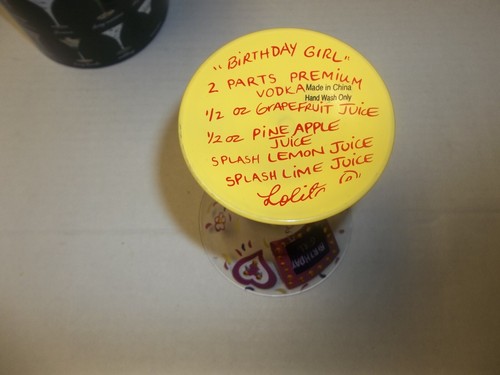 "BIRTHDAY GIRL"
2 PARTS PREMIUM
VODKA
Made in China
Hand Wash Only
1/2 oz GRAPEFRUIT JUICE
1/2 oz PINE APPLE
JUICE
SPLASH LEMON JUICE
SPLASH LIME JUICE
Lolita